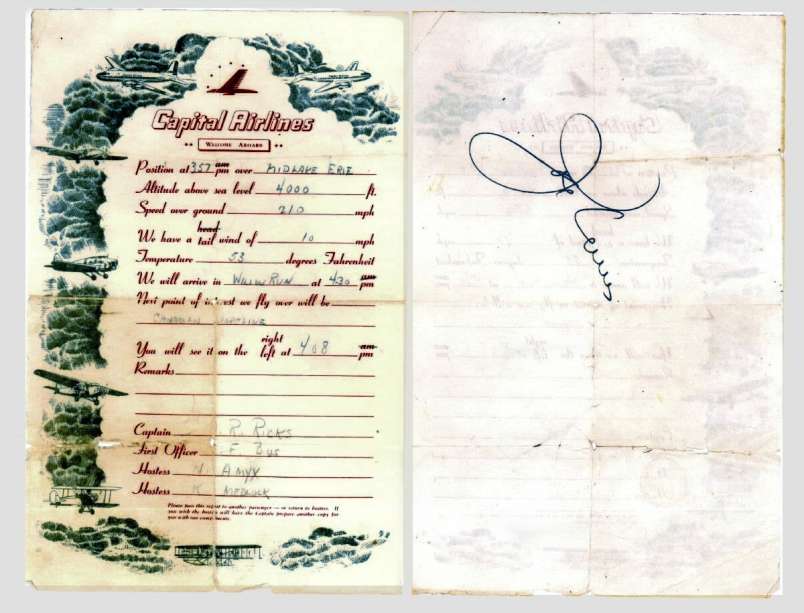 Capital Airlines
WELCOME ABOARD
Position at 357 am pm over MIDLAKE ERIE
Altitude above sea level 4000 ft.
Speed over ground 210 mph
head
We have a tail wind of 10 mph
Temperature 53 degrees Fahrenheit
We will arrive in WILLOW RUN at 430 am pm
Next point of interest we fly over will be
CANADIAN SHORELINE
right
You will see it on the left at 408 am pm
Remarks
Captain R. RICKS
First Officer F. BUS
Hostess N AMYX
Hostess K MEDLOCK
Please pass this report to another passenger — or return to hostess. If
you wish the hostess will have the Captain prepare another copy for
you with our compliments.